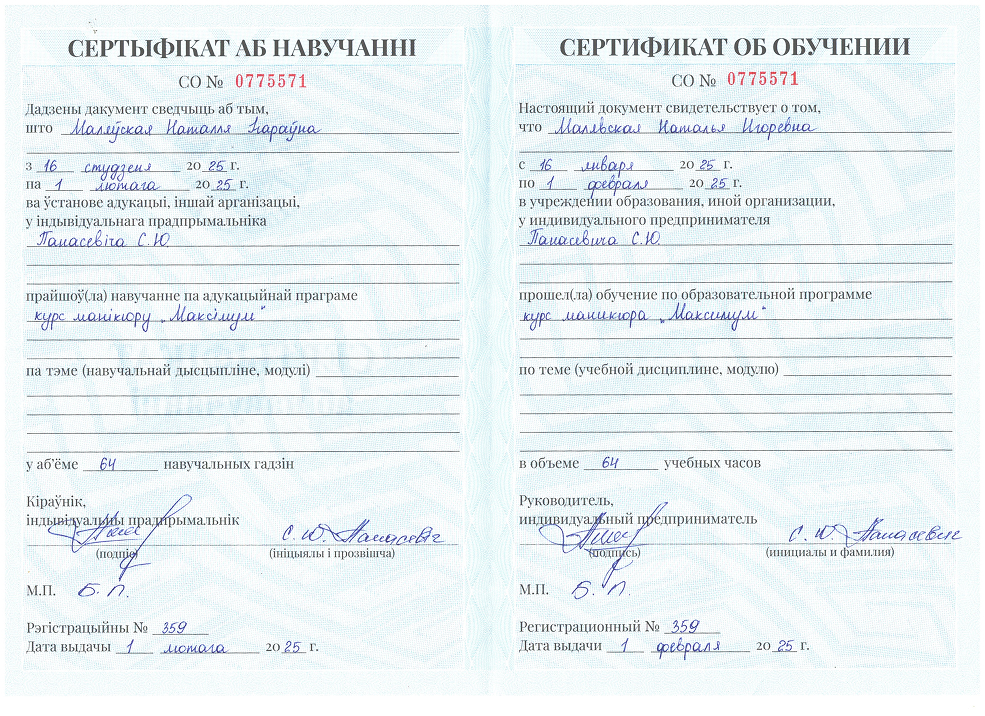 СЕРТЫФІКАТ АБ НАВУЧАННІ
СО № 0775571
Дадзены дакумент сведчыць аб тым,
што Маляўская Наталля Ігараўна
з 16 студзеня 2025 г.
па 1 лютага 2025 г.
ва ўстанове адукацыі, іншай арганізацыі,
у індывідуальнага прадпрымальніка
Панасевіча С.Ю.
прайшоў(ла) навучанне па адукацыйнай праграме
курс манікюру „Максімум"
па тэме (навучальнай дысцыпліне, модулі)
у аб'ёме 64 навучальных гадзін
Кіраўнік,
індывідуальны прадпрымальнік
С. Ю. Панасевіч
(подпіс) (ініцыялы і прозвішча)
М.П. Б. П.
Рэгістрацыйны № 359
Дата выдачы 1 лютага 2025 г.
СЕРТИФИКАТ ОБ ОБУЧЕНИИ
СО № 0775571
Настоящий документ свидетельствует о том,
что Малявская Наталья Игоревна
с 16 января 2025 г.
по 1 февраля 2025 г.
в учреждении образования, иной организации,
у индивидуального предпринимателя
Панасевича С.Ю.
прошел(ла) обучение по образовательной программе
курс маникюра „Максимум"
по теме (учебной дисциплине, модулю)
в объеме 64 учебных часов
Руководитель,
индивидуальный предприниматель
С. Ю. Панасевич
(подпись) (инициалы и фамилия)
М.П. Б. П.
Регистрационный № 359
Дата выдачи 1 февраля 2025 г.